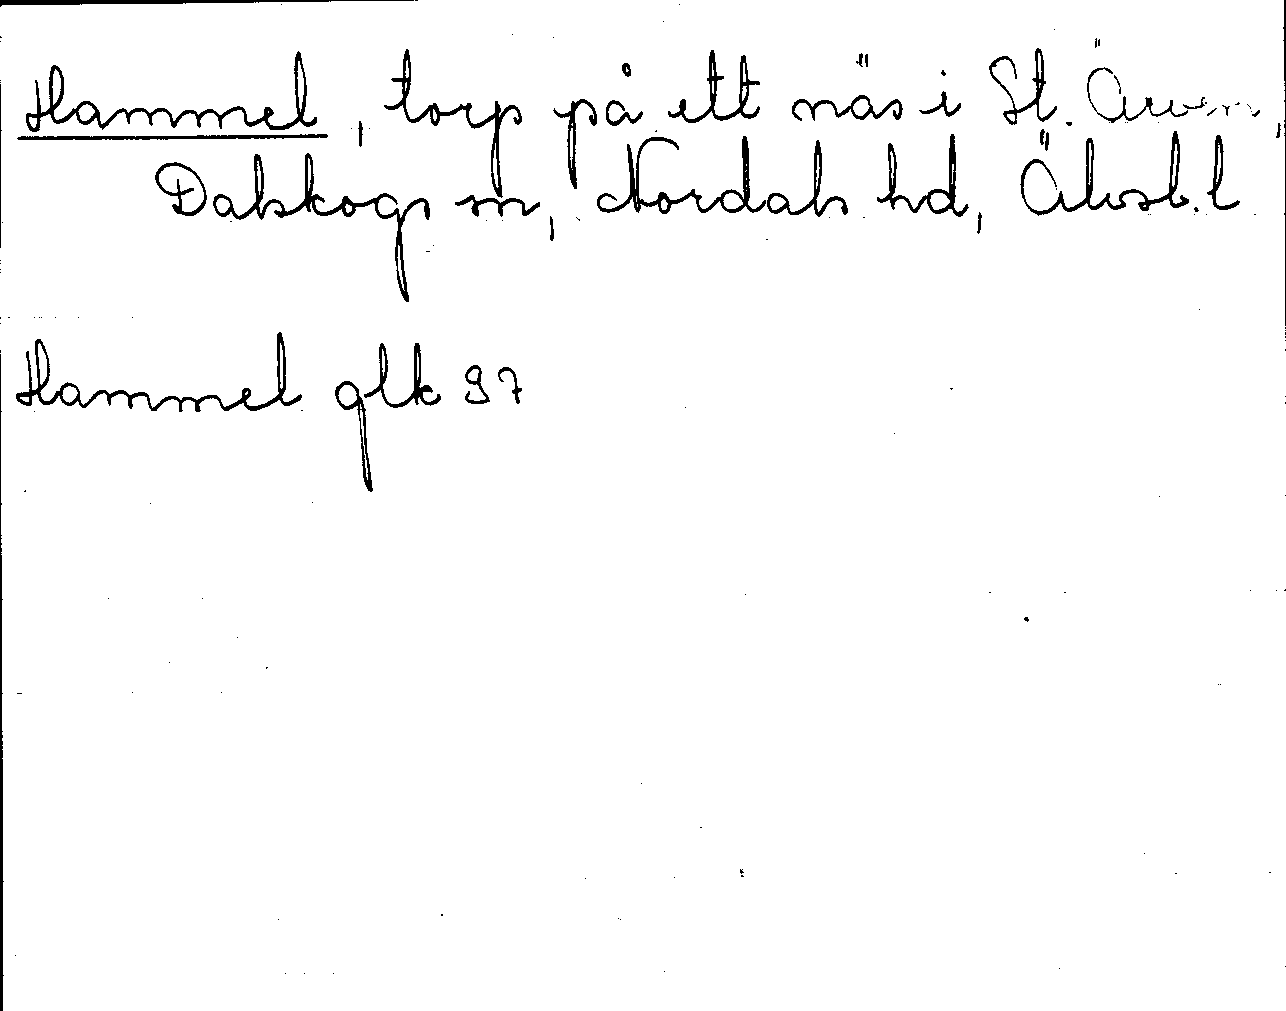 Hammel, torp på ett näs i St. Ärven,
Dalskogs sn, Nordals hd, Älvsb. l
Hammel glk 97